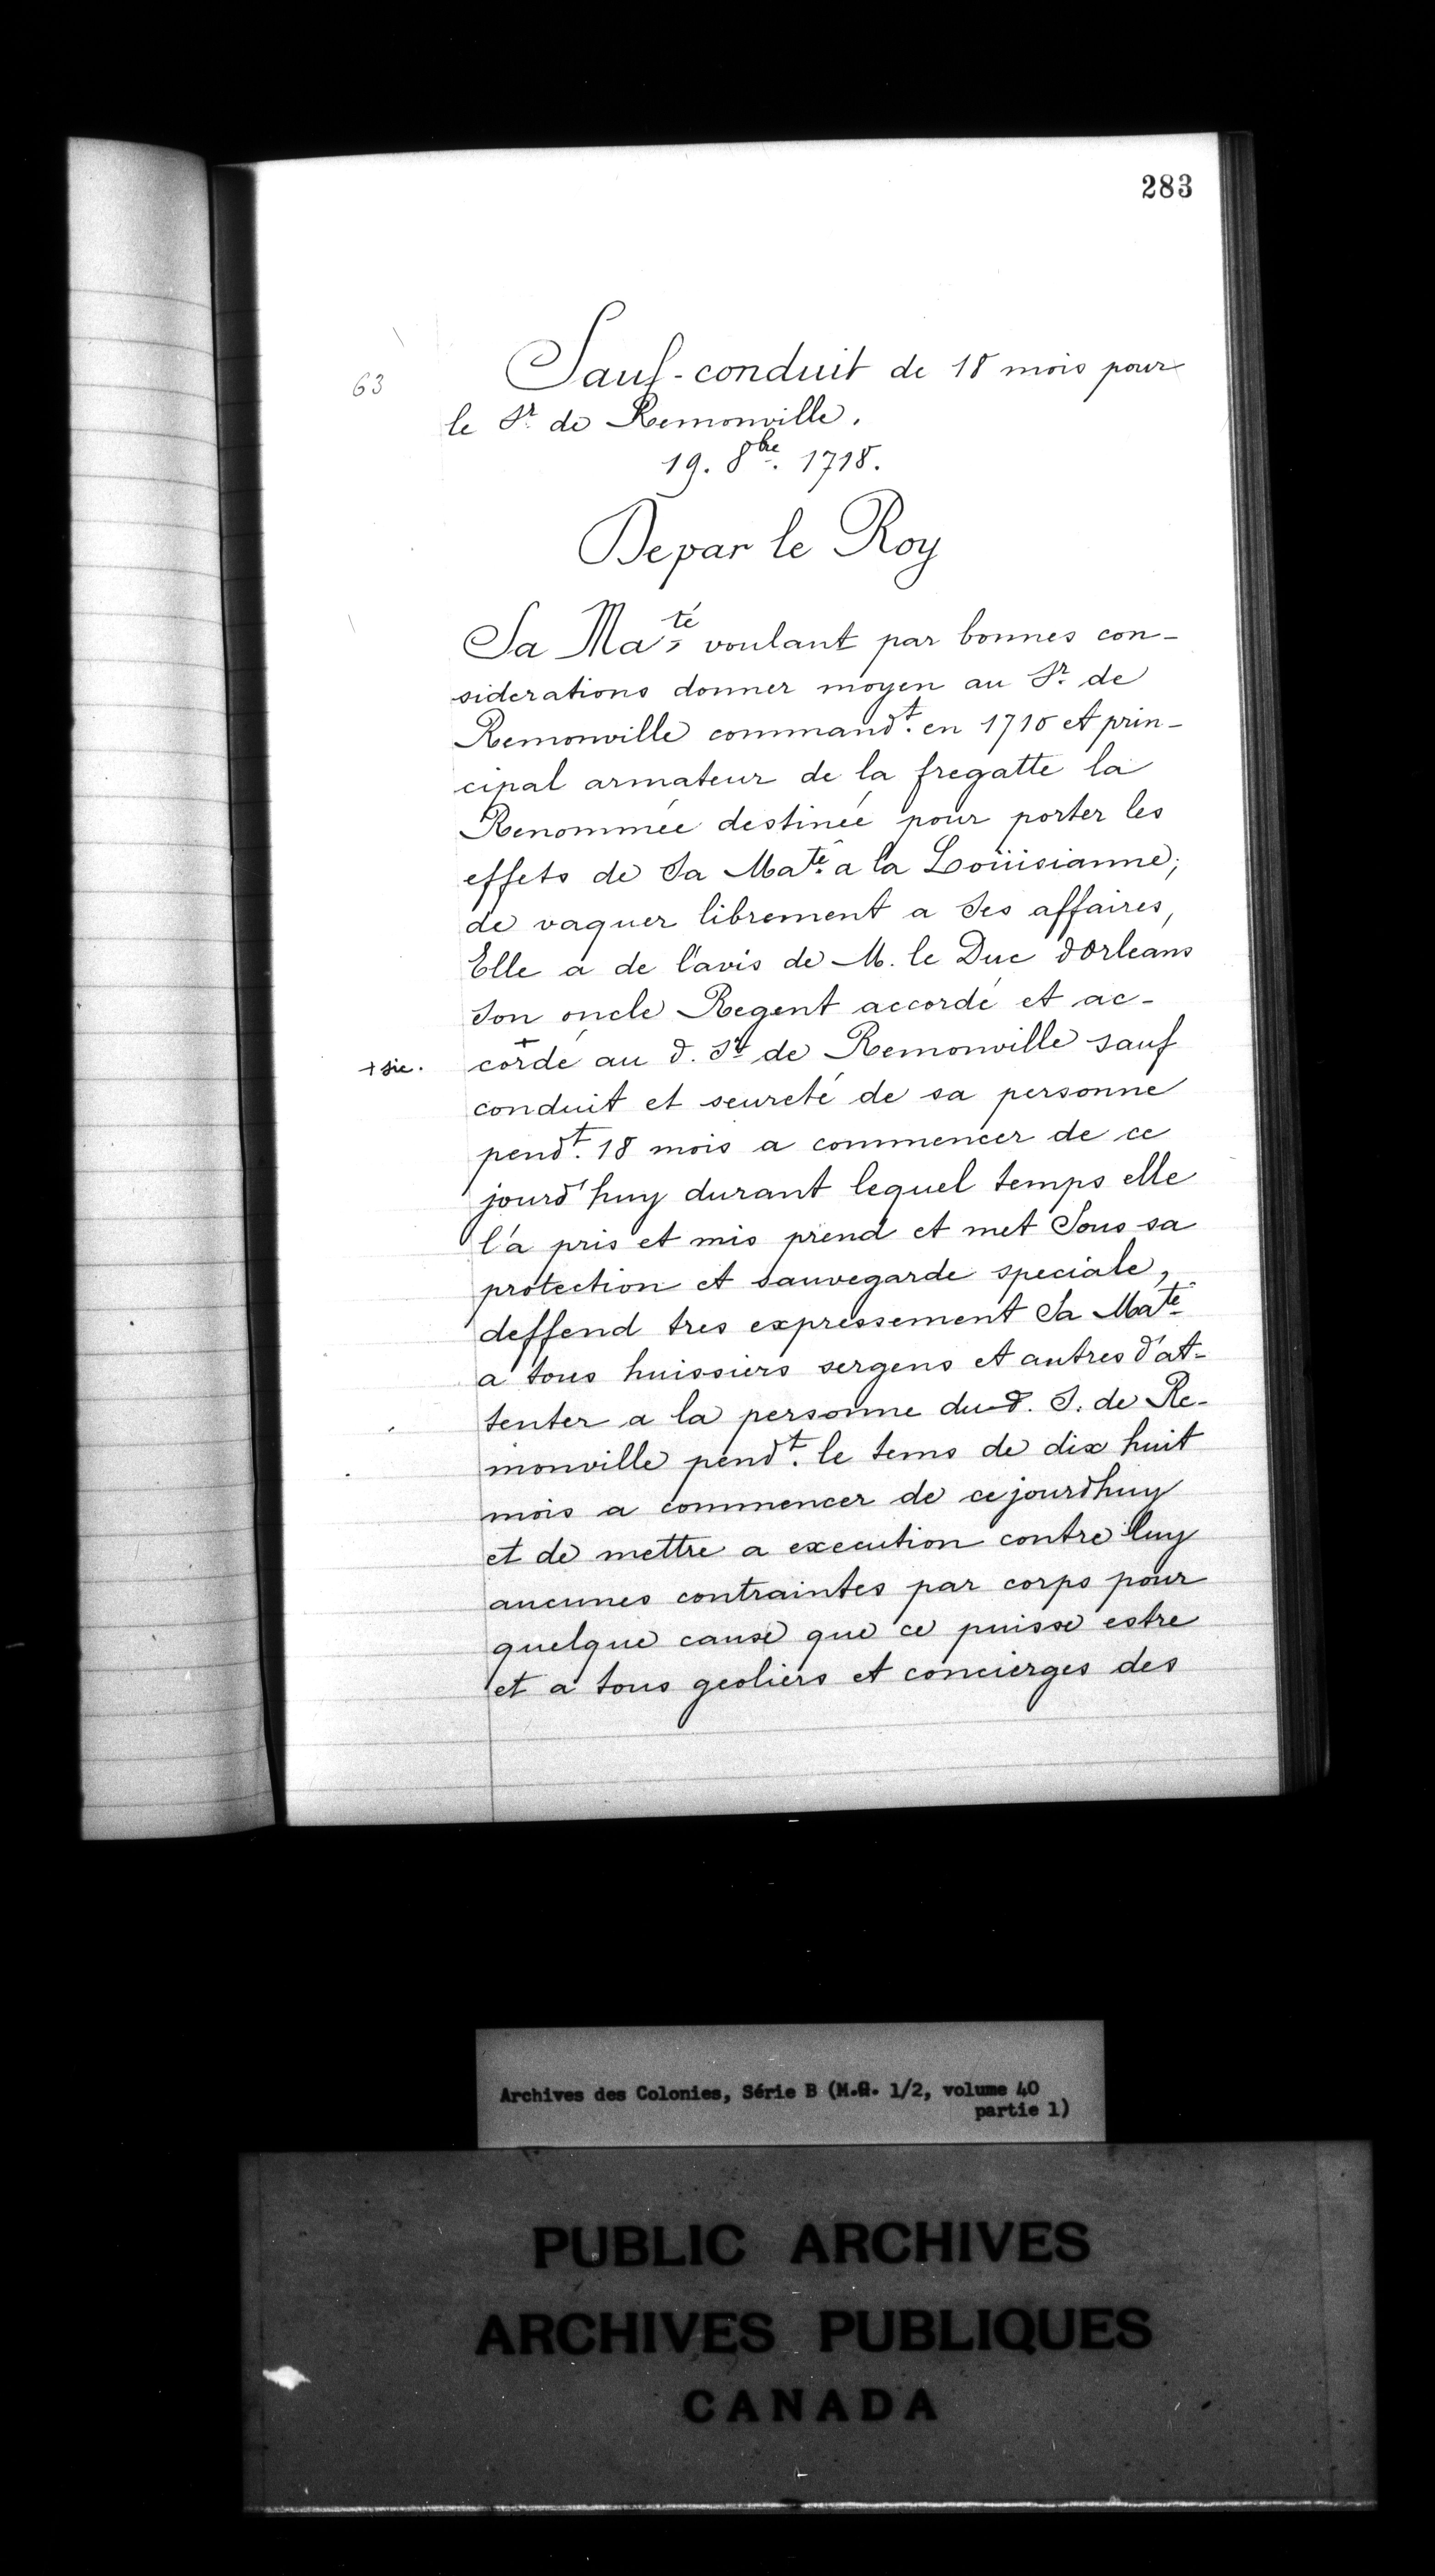 283
63
Sauf-conduit de 18 mois pour
le Sr. de Remonville.
19. 8bre. 1718.
De par le Roy
Sa Ma.té voulant par bonnes con-
siderations donner moyen au Sr. de
Remonville command.t en 1710 et prin-
cipal armateur de la fregatte la
Renommée destinée pour porter les
effets de Sa Ma.té a la Loüisianne;
de vaquer librement a Ses affaires,
Elle a de l'avis de M. le Duc dOrleans
Son oncle Regent accordé et ac-
+ sic. cordé + au d. Sr. de Remonville sauf
conduit et seureté de sa personne
pend.t 18 mois a commencer de ce
jourd'huy durant lequel temps elle
l'a pris et mis prend et met Sous sa
protection et sauvegarde speciale,
deffend tres expressement Sa Ma.té
a tous huissiers sergens et autres d'at-
tenter a la personne du d. S. de Re-
monville pend.t le tems de dix huit
mois a commencer de cejourdhuy
et de mettre a execution contre luy
aucunes contraintes par corps pour
quelque cause que ce puisse estre
et a tous geoliers et concierges des
Archives des Colonies, Série B (M.G. 1/2, volume 40
partie 1)
PUBLIC ARCHIVES
ARCHIVES PUBLIQUES
CANADA